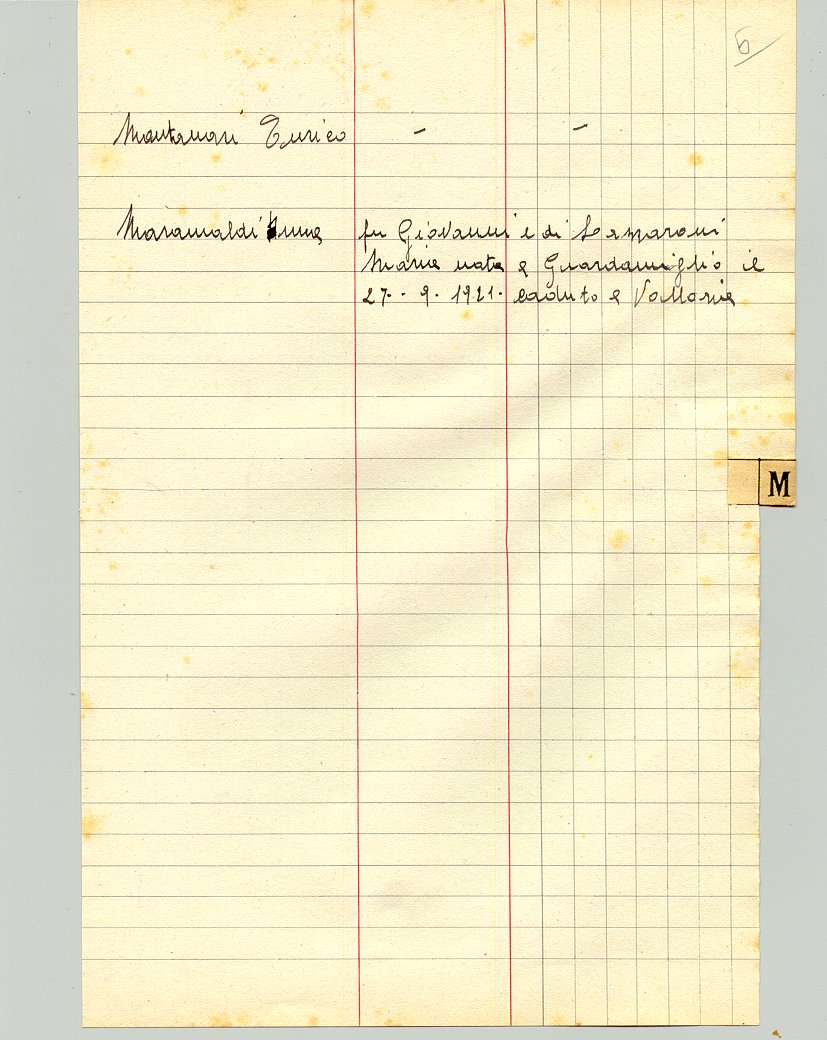 6
Mantovani Enrico - -
Maramaldi fu Giovanni e di
Maria nata a Guardamiglio il
27. . 9. 1921. caduto a Valloria
M